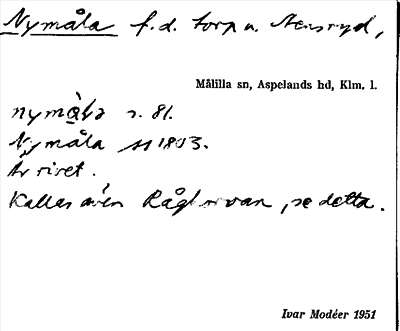 Nymåla f.d. torp u. Stensryd,
Målilla sn, Aspelands hd, Klm. l.
nymå̀la s. 81.
Nymåla 1803.
Är rivet.
Kallas även, se detta.
Ivar Modéer 1951